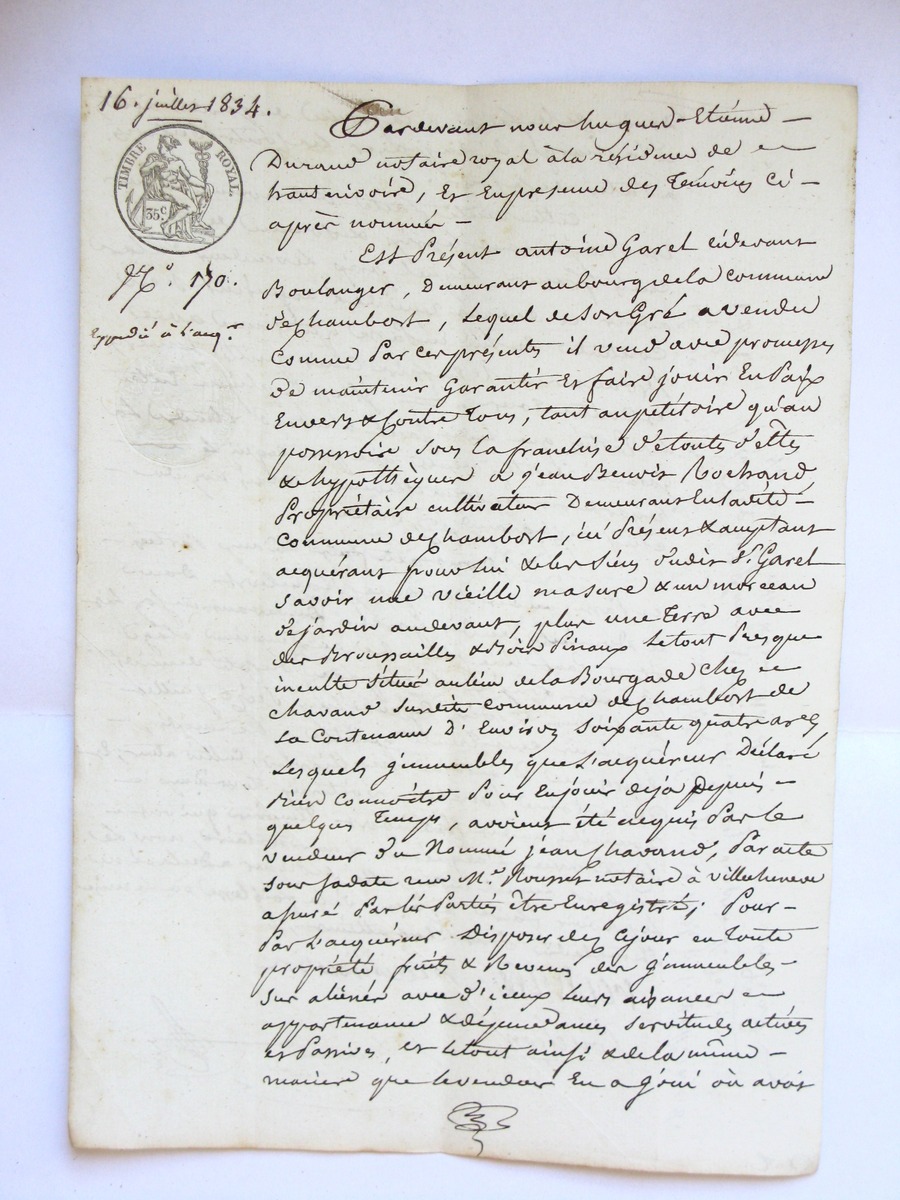 16. juillet 1834.
TIMBRE ROYAL
35 c
N.o 170.
Expedié à l'acq.r
Pardevant nous hugues-Etiéne
Durand notaire royal à la résidence de
hauterivoire, Et En présence des Témoins Ci-
après nommés
Est Présent antoine Garel cidevant
Boulanger, Demeurant au bourg de la commune
de Chambost, Lequel de son Gré a vendu
Comme Par ces présentes il vend avec promesses
de maintenir Garantir Et faire jouir En Paix
Envers & Contre Tous, tant au pétitoire qu'au
possessoire sous la franchise de toutes dettes
& hypothèques a jean Benoit Rochand
Propriétaire cultivateur Demeurant En ladite
Commune de Chambost, ici Présent & acceptant
acquérant pour lui & les siens dudit S.r Garel
savoir une vieille masure & un morceau
de jardin au devant, plus une Terre avec
des Broussailles & Bois Pinaux Le tout Presque
inculte Situé au lieu de la Bourgade Chez
chavand susdite commune de Chambost de
la Contenance D'Environ soixante quatre ares
Lesquels jmmeubles que L'acquéreur Déclare
Bien Connoître Pour En jouir deja Depuis
quelques Temps, avoient été acquis Par le
vendeur du Nommé jean Chavand, Par acte
sous sa date reçu M.e Rousset notaire à villecheneve
assuré Par les Parties être Enregistré; Pour
Par L'acquéreur Disposer dès ce jour en toute
propriété fruits & Revenus des jmmeubles
sus aliénés avec d'iceux Leurs aisances
appartenances & dépendances servitudes actives
et Passives, et le tout ainsi & de la même
maniere que le vendeur En a joui ou avoit